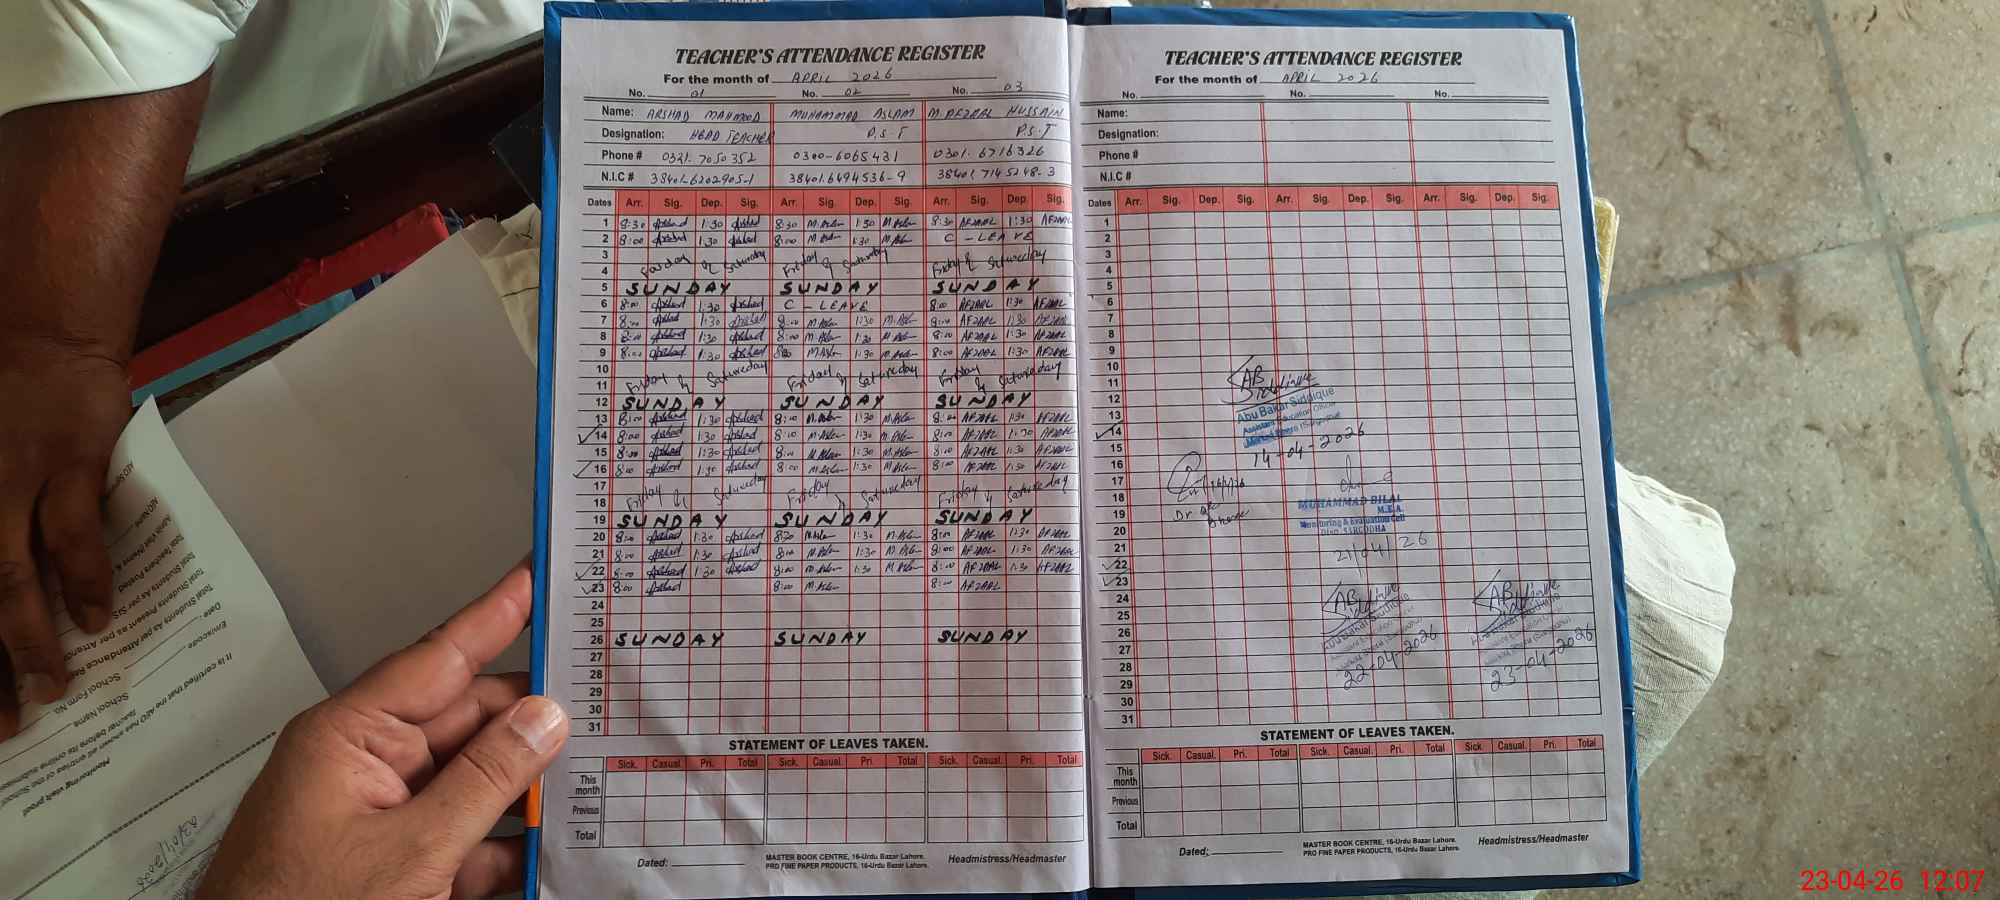 TEACHER'S ATTENDANCE REGISTER
For the month of APRIL 2026
No. 01 No. 02 No. 03
Name: ARSHAD MAHMOOD MUHAMMAD ASLAM M. AFZAAL HUSSAIN
Designation: HEAD TEACHER P.S.T P.S.T
Phone # 0321.7050352 0300-6065431 0301.6716326
N.I.C # 38401-6202905-1 38401.6494536-9 38401.7145248-3
Dates Arr. Sig. Dep. Sig. Arr. Sig. Dep. Sig. Arr. Sig. Dep. Sig.
1 8:30 Arshad 1:30 Arshad 8:30 M.Aslam 1:30 M.Aslam 8:30 AFZAAL 1:30 AFZAAL
2 8:00 Arshad 1:30 Arshad 8:00 M.Aslam 1:30 M.Aslam C-LEAVE
3
4 Friday & Saturday Friday & Saturday
5 SUNDAY SUNDAY SUNDAY
6 8:00 Arshad 1:30 Arshad C-LEAVE 8:00 AFZAAL 1:30 AFZAAL
7 8:00 Arshad 1:30 Arshad 8:00 M.Aslam 1:30 M.Aslam 8:00 AFZAAL 1:30 AFZAAL
8 8:00 Arshad 1:30 Arshad 8:00 M.Aslam 1:30 M.Aslam 8:00 AFZAAL 1:30 AFZAAL
9 8:00 Arshad 1:30 Arshad 8:00 M.Aslam 1:30 M.Aslam 8:00 AFZAAL 1:30 AFZAAL
10
11 Friday & Satureday Friday & Satureday Friday & Satureday
12 SUNDAY SUNDAY SUNDAY
13 8:00 Arshad 1:30 Arshad 8:00 M.Aslam 1:30 M.Aslam 8:00 AFZAAL 1:30 AFZAAL
14 8:00 Arshad 1:30 Arshad 8:00 M.Aslam 1:30 M.Aslam 8:00 AFZAAL 1:30 AFZAAL
15 8:00 Arshad 1:30 Arshad 8:00 M.Aslam 1:30 M.Aslam 8:00 AFZAAL 1:30 AFZAAL
16 8:00 Arshad 1:30 Arshad 8:00 M.Aslam 1:30 M.Aslam 8:00 AFZAAL 1:30 AFZAAL
17
18 Friday & Satureday Friday & Satureday Friday & Satureday
19 SUNDAY SUNDAY SUNDAY
20 8:00 Arshad 1:30 Arshad M.Aslam 1:30 M.Aslam 8:00 AFZAAL 1:30 AFZAAL
21 8:00 Arshad 1:30 Arshad 8:00 M.Aslam 1:30 M.Aslam 8:00 AFZAAL 1:30 AFZAAL
22 8:00 Arshad 1:30 Arshad 8:00 M.Aslam 1:30 M.Aslam 8:00 AFZAAL 1:30 AFZAAL
23 8:00 Arshad 8:00 M.Aslam 8:00 AFZAAL
24
25
26 SUNDAY SUNDAY SUNDAY
27
28
29
30
31
STATEMENT OF LEAVES TAKEN.
Sick. Casual. Pri. Total Sick. Casual. Pri. Total Sick. Casual. Pri. Total
This month
Previous
Total
Dated:
MASTER BOOK CENTRE, 16-Urdu Bazar Lahore.
PRO FINE PAPER PRODUCTS, 16-Urdu Bazar Lahore.
Headmistress/Headmaster
TEACHER'S ATTENDANCE REGISTER
For the month of APRIL 2026
No. No. No.
Name:
Designation:
Phone #
N.I.C #
Dates Arr. Sig. Dep. Sig. Arr. Sig. Dep. Sig. Arr. Sig. Dep. Sig.
1
2
3
4
5
6
7
8
9
10
11 AB
12 Siddique
13 Abu Bakar Siddique
Assistant Education Officer
14
15 14-04-2026
16
17
18 MUHAMMAD BILAL
M.E.A.
19 Dr
Monitoring & Evaluation Cell
20 Distt. SARGODHA
21 21/04/26
22
23
24 AB Siddique AB Siddique
25
26 Abu Bakar Siddique
27
28 22-04-2026 23-04-2026
29
30
31
STATEMENT OF LEAVES TAKEN.
Sick. Casual. Pri. Total Sick. Casual. Pri. Total Sick. Casual. Pri. Total
This month
Previous
Total
Dated;
MASTER BOOK CENTRE, 16-Urdu Bazar Lahore.
PRO FINE PAPER PRODUCTS, 16-Urdu Bazar Lahore.
Headmistress/Headmaster
Monitoring visit proof
It is certified that the AEO has shown all entries of the School
Teacher before its online submission
School Name
School Form No.
Emiscode
Date
Total Students As per Attendance
Total Students present as per
Total Students As per SIS
Total Teachers Posted
23-04-26 12:07